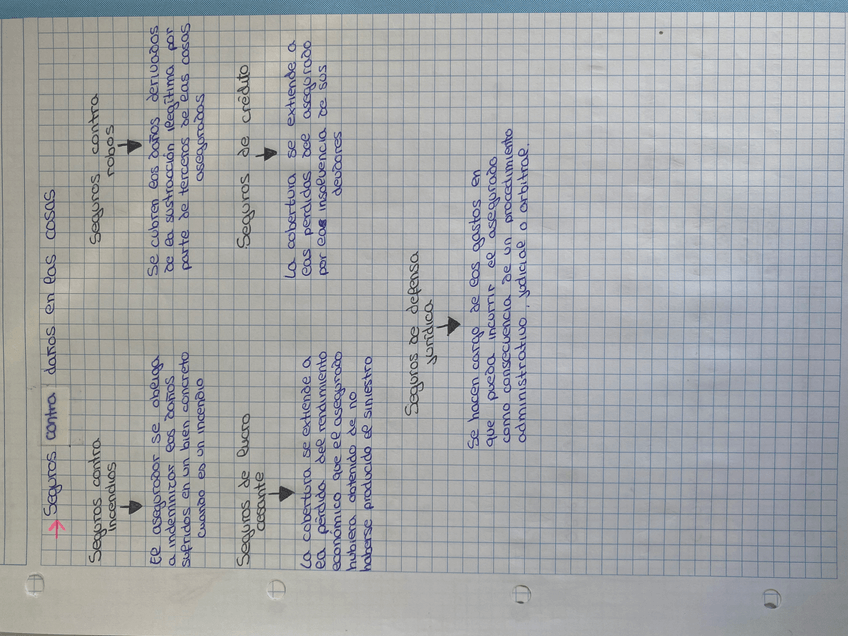 → Seguros contra daños en las cosas
Seguros contra
incendios
El asegurador se obliga
a indemnizar los daños
sufridos en un bien concreto
cuando es un incendio
Seguros contra
robos
Se cubren los daños derivados
de la sustracción ilegítima por
parte de terceros de las cosas
aseguradas
Seguros de lucro
cesante
La cobertura se extiende a
la pérdida del rendimiento
económico que el asegurado
hubiera obtenido de no
haberse producido el siniestro
Seguros de crédito
La cobertura se extiende a
las pérdidas del asegurado
por las insolvencia de sus
deudores
Seguros de defensa
jurídica
Se hacen cargo de los gastos en
que pueda incurrir el asegurado
como consecuencia de un procedimiento
administrativo, judicial o arbitral.